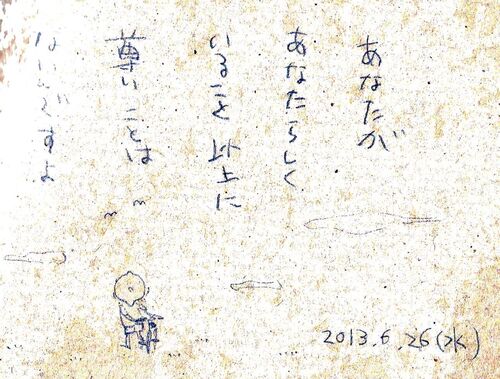 あなたが
あなたらしく
いること 以上に
尊い ことは
ないですよ
2013.6.26(水)